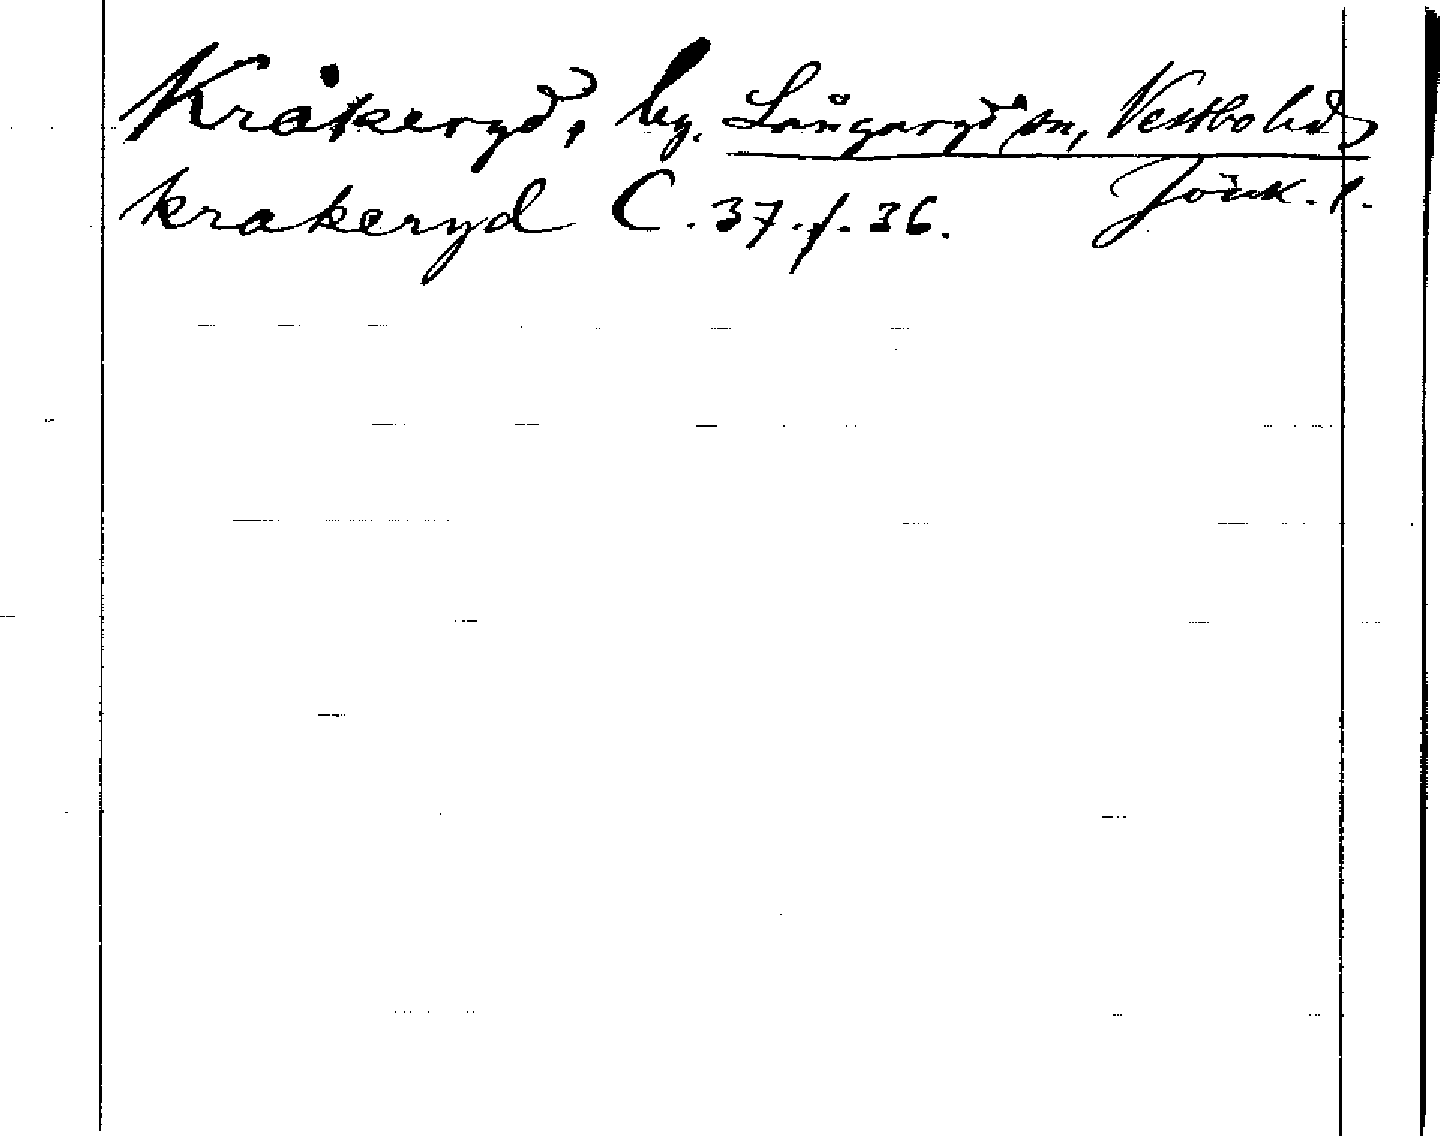 Kråkeryd, by. Långaryd sn, Vestbo hd,
Jönk. l.
krakeryd C. 37. f. 36.